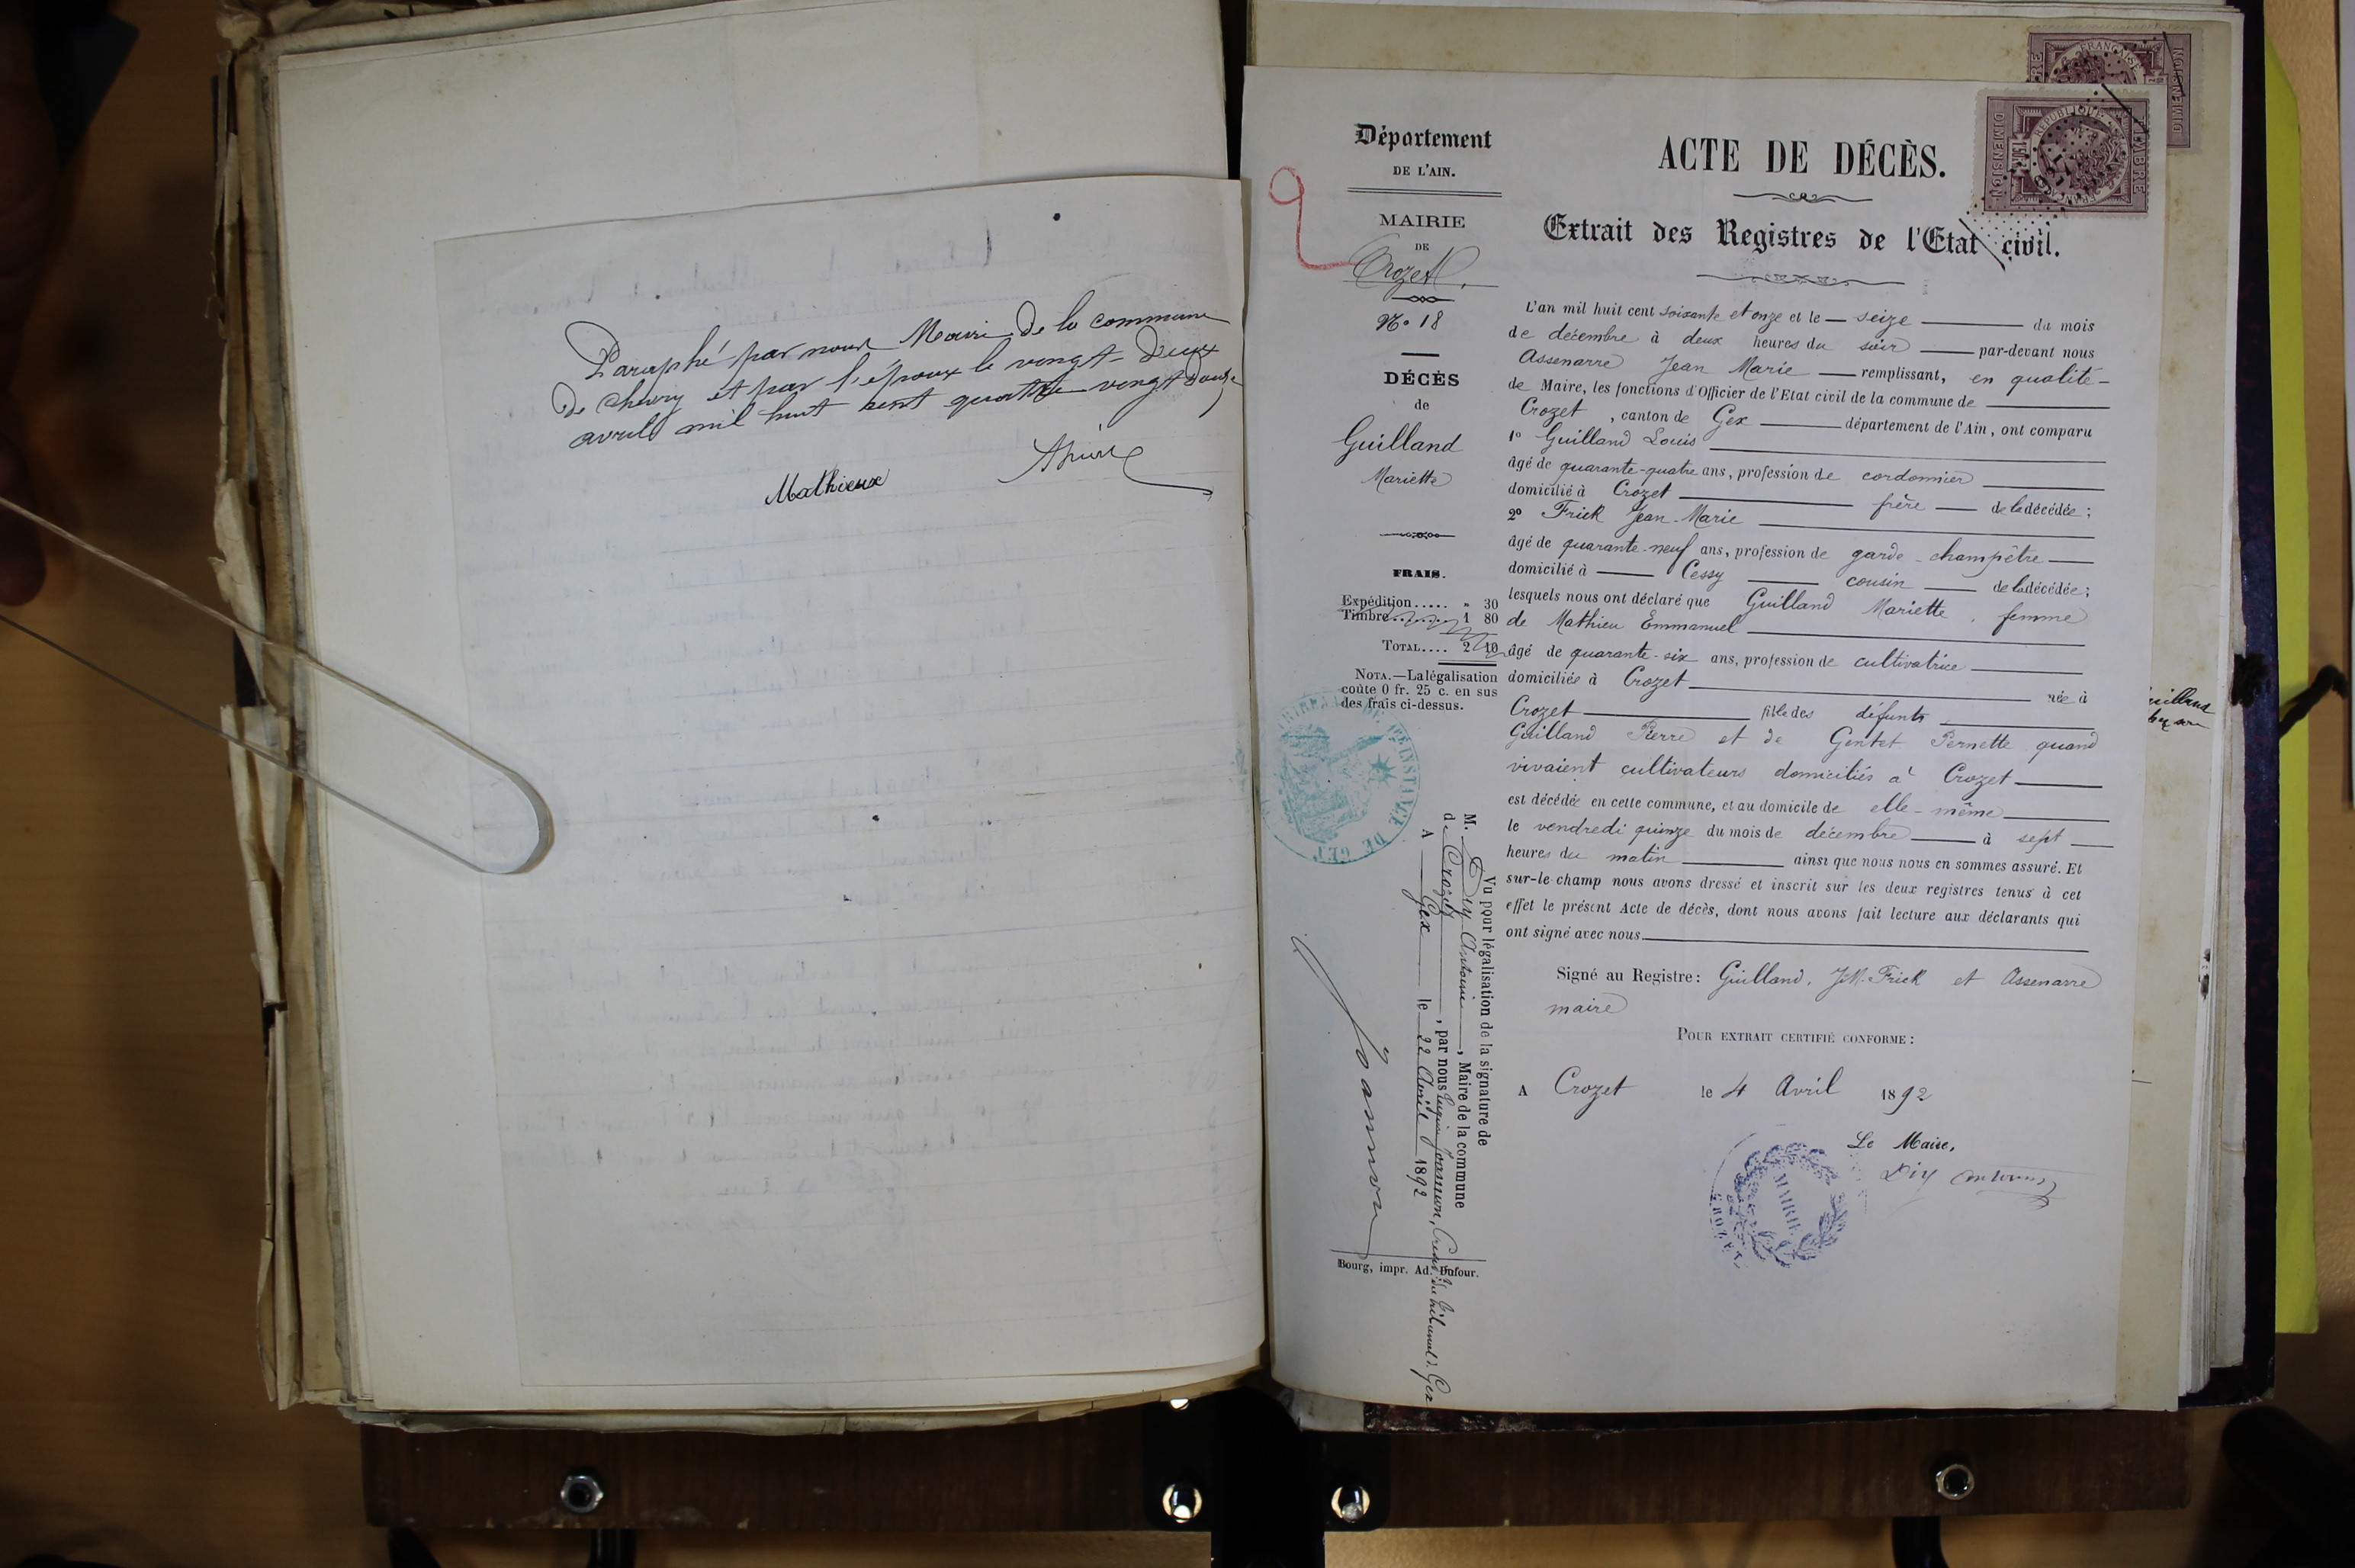 Paraphé par nous Maire de la commune
de Chevry et par l'époux le vingt-deux
avril mil huit cent quatre vingt douze
Mathieux
Département
DE L'AIN.
MAIRIE
DE
Crozet.
No 18
DÉCÈS
de
Guilland
Mariette
FRAIS.
Expédition..... » 30
Timbre......... 1 80
TOTAL.... 2 10
NOTA.—La légalisation
coûte 0 fr. 25 c. en sus
des frais ci-dessus.
ACTE DE DÉCÈS.
Extrait des Registres de l'Etat civil.
L'an mil huit cent soixante et onze et le seize du mois
de décembre à deux heures du soir par-devant nous
Assenarre Jean Marie remplissant, en qualité
de Maire, les fonctions d'Officier de l'Etat civil de la commune de
Crozet, canton de Gex département de l'Ain, ont comparu
1° Guilland Louis
âgé de quarante-quatre ans, profession de cordonnier
domicilié à Crozet frère de la décédée;
2° Frick Jean-Marie
âgé de quarante-neuf ans, profession de garde-champêtre
domicilié à Cessy cousin de la décédée;
lesquels nous ont déclaré que Guilland Mariette, femme
de Mathieu Emmanuel
âgé de quarante-six ans, profession de cultivatrice
domiciliée à Crozet née à
Crozet fille des défunts
Guilland Pierre et de Gentet Pernette quand
vivaient cultivateurs domiciliés à Crozet
est décédée en cette commune, et au domicile de elle-même
le vendredi quinze du mois de décembre à sept
heures du matin ainsi que nous nous en sommes assuré. Et
sur-le champ nous avons dressé et inscrit sur les deux registres tenus à cet
effet le présent Acte de décès, dont nous avons fait lecture aux déclarants qui
ont signé avec nous.
Signé au Registre: Guilland, JM. Frick et Assenarre
maire
POUR EXTRAIT CERTIFIÉ CONFORME:
A Crozet le 4 Avril 1892
Le Maire,
MAIRIE
CROZET
Vu pour légalisation de la signature de
M. Dry Antoine, Maire de la commune
de Crozet, par nous Jeannon, du tribunal de Gex
A Gex le 22 Avril 1892
Jeannon
Bourg, impr. Ad. Dufour.
RÉPUBLIQUE FRANÇAISE
TIMBRE
DIMENSION
FRANÇAISE
DIMENSION
INSTANCE DE GEX